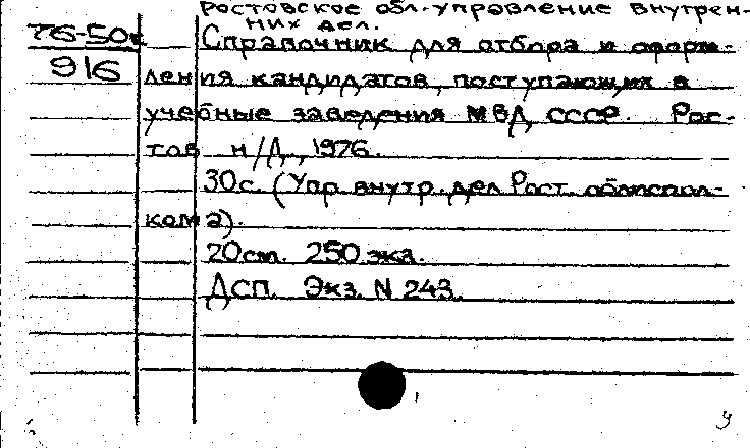 Ростовское обл. управление внутрен-
них дел.
76-50с
916
Справочник для отбора и оформ-
ления кандидатов, поступающих в
учебные заведения МВД СССР. Рос-
тов н/Д, 1976.
30с. (Упр. внутр. дел Рост. облиспол-
кома).
20см. 250 экз.
ДСП. Экз. N 243.